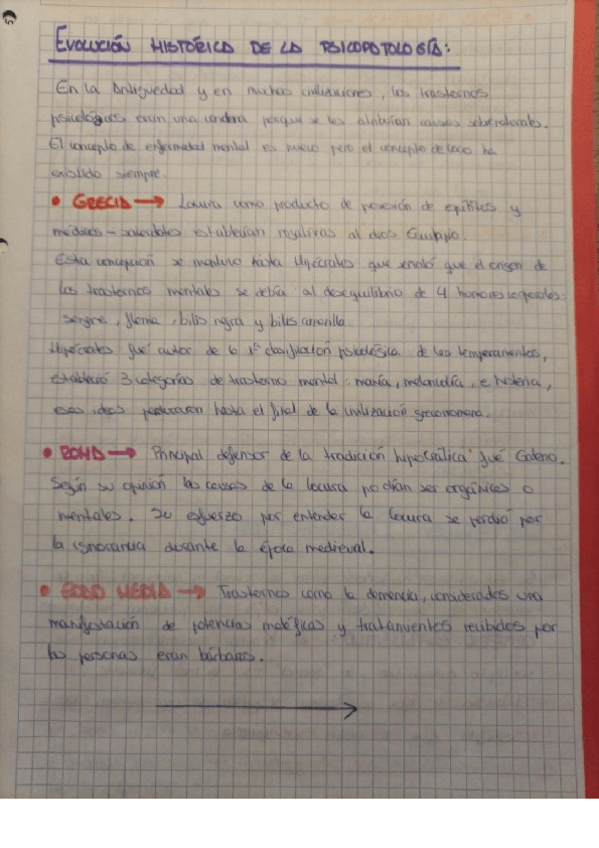 EVOLUCIÓN HISTÓRICA DE LA PSICOPATOLOGÍA:
En la Antiguedad y en muchas civilizaciones, los trastornos
psicológicos eran una condena porque se les atribuían causas sobrenaturales.
El concepto de enfermedad mental es nuevo pero el concepto de loco ha
existido siempre.
• GRECIA → Locura como producto de posesión de espíritus y
médicos-sacerdotes establecían rogativas al dios Esculapio.
Esta concepción se mantuvo hasta Hipócrates que señaló que el origen de
los trastornos mentales se debía al desequilibrio de 4 humores corporales:
sangre, flema, bilis negra y bilis amarilla.
Hipócrates fué autor de la 1ª clasificación psicológica de los temperamentos,
estableció 3 categorías de trastorno mental: manía, melancolía, e histeria,
esas ideas perduraron hasta el final de la civilización grecorromana.
• ROMA → Principal defensor de la tradición hipocrática fué Galeno.
Según su opinión las causas de la locura podían ser orgánicas o
mentales. Su esfuerzo por entender la locura se perdió por
la ignorancia durante la época medieval.
• EDAD MEDIA → Trastornos como la demencia, considerados una
manifestación de potencias maléficas y tratamientos recibidos por
las personas eran bárbaros.